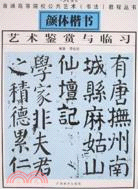 普通高等院校公共艺术(书法)教程丛书
颜体楷书
艺术鉴赏与临习
有唐撫州南
城縣麻姑山
仙壇記
學家非夫人
之積德累仁